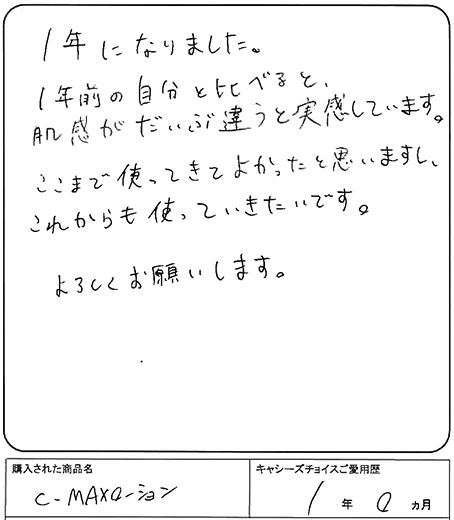 1年になりました。
1年前の自分と比べると、
肌感がだいぶ違うと実感しています。
ここまで使ってきてよかったと思いますし、
これからも使っていきたいです。
よろしくお願いします。
購入された商品名
C-MAXローション
キャシーズチョイスご愛用歴
1年0ヵ月